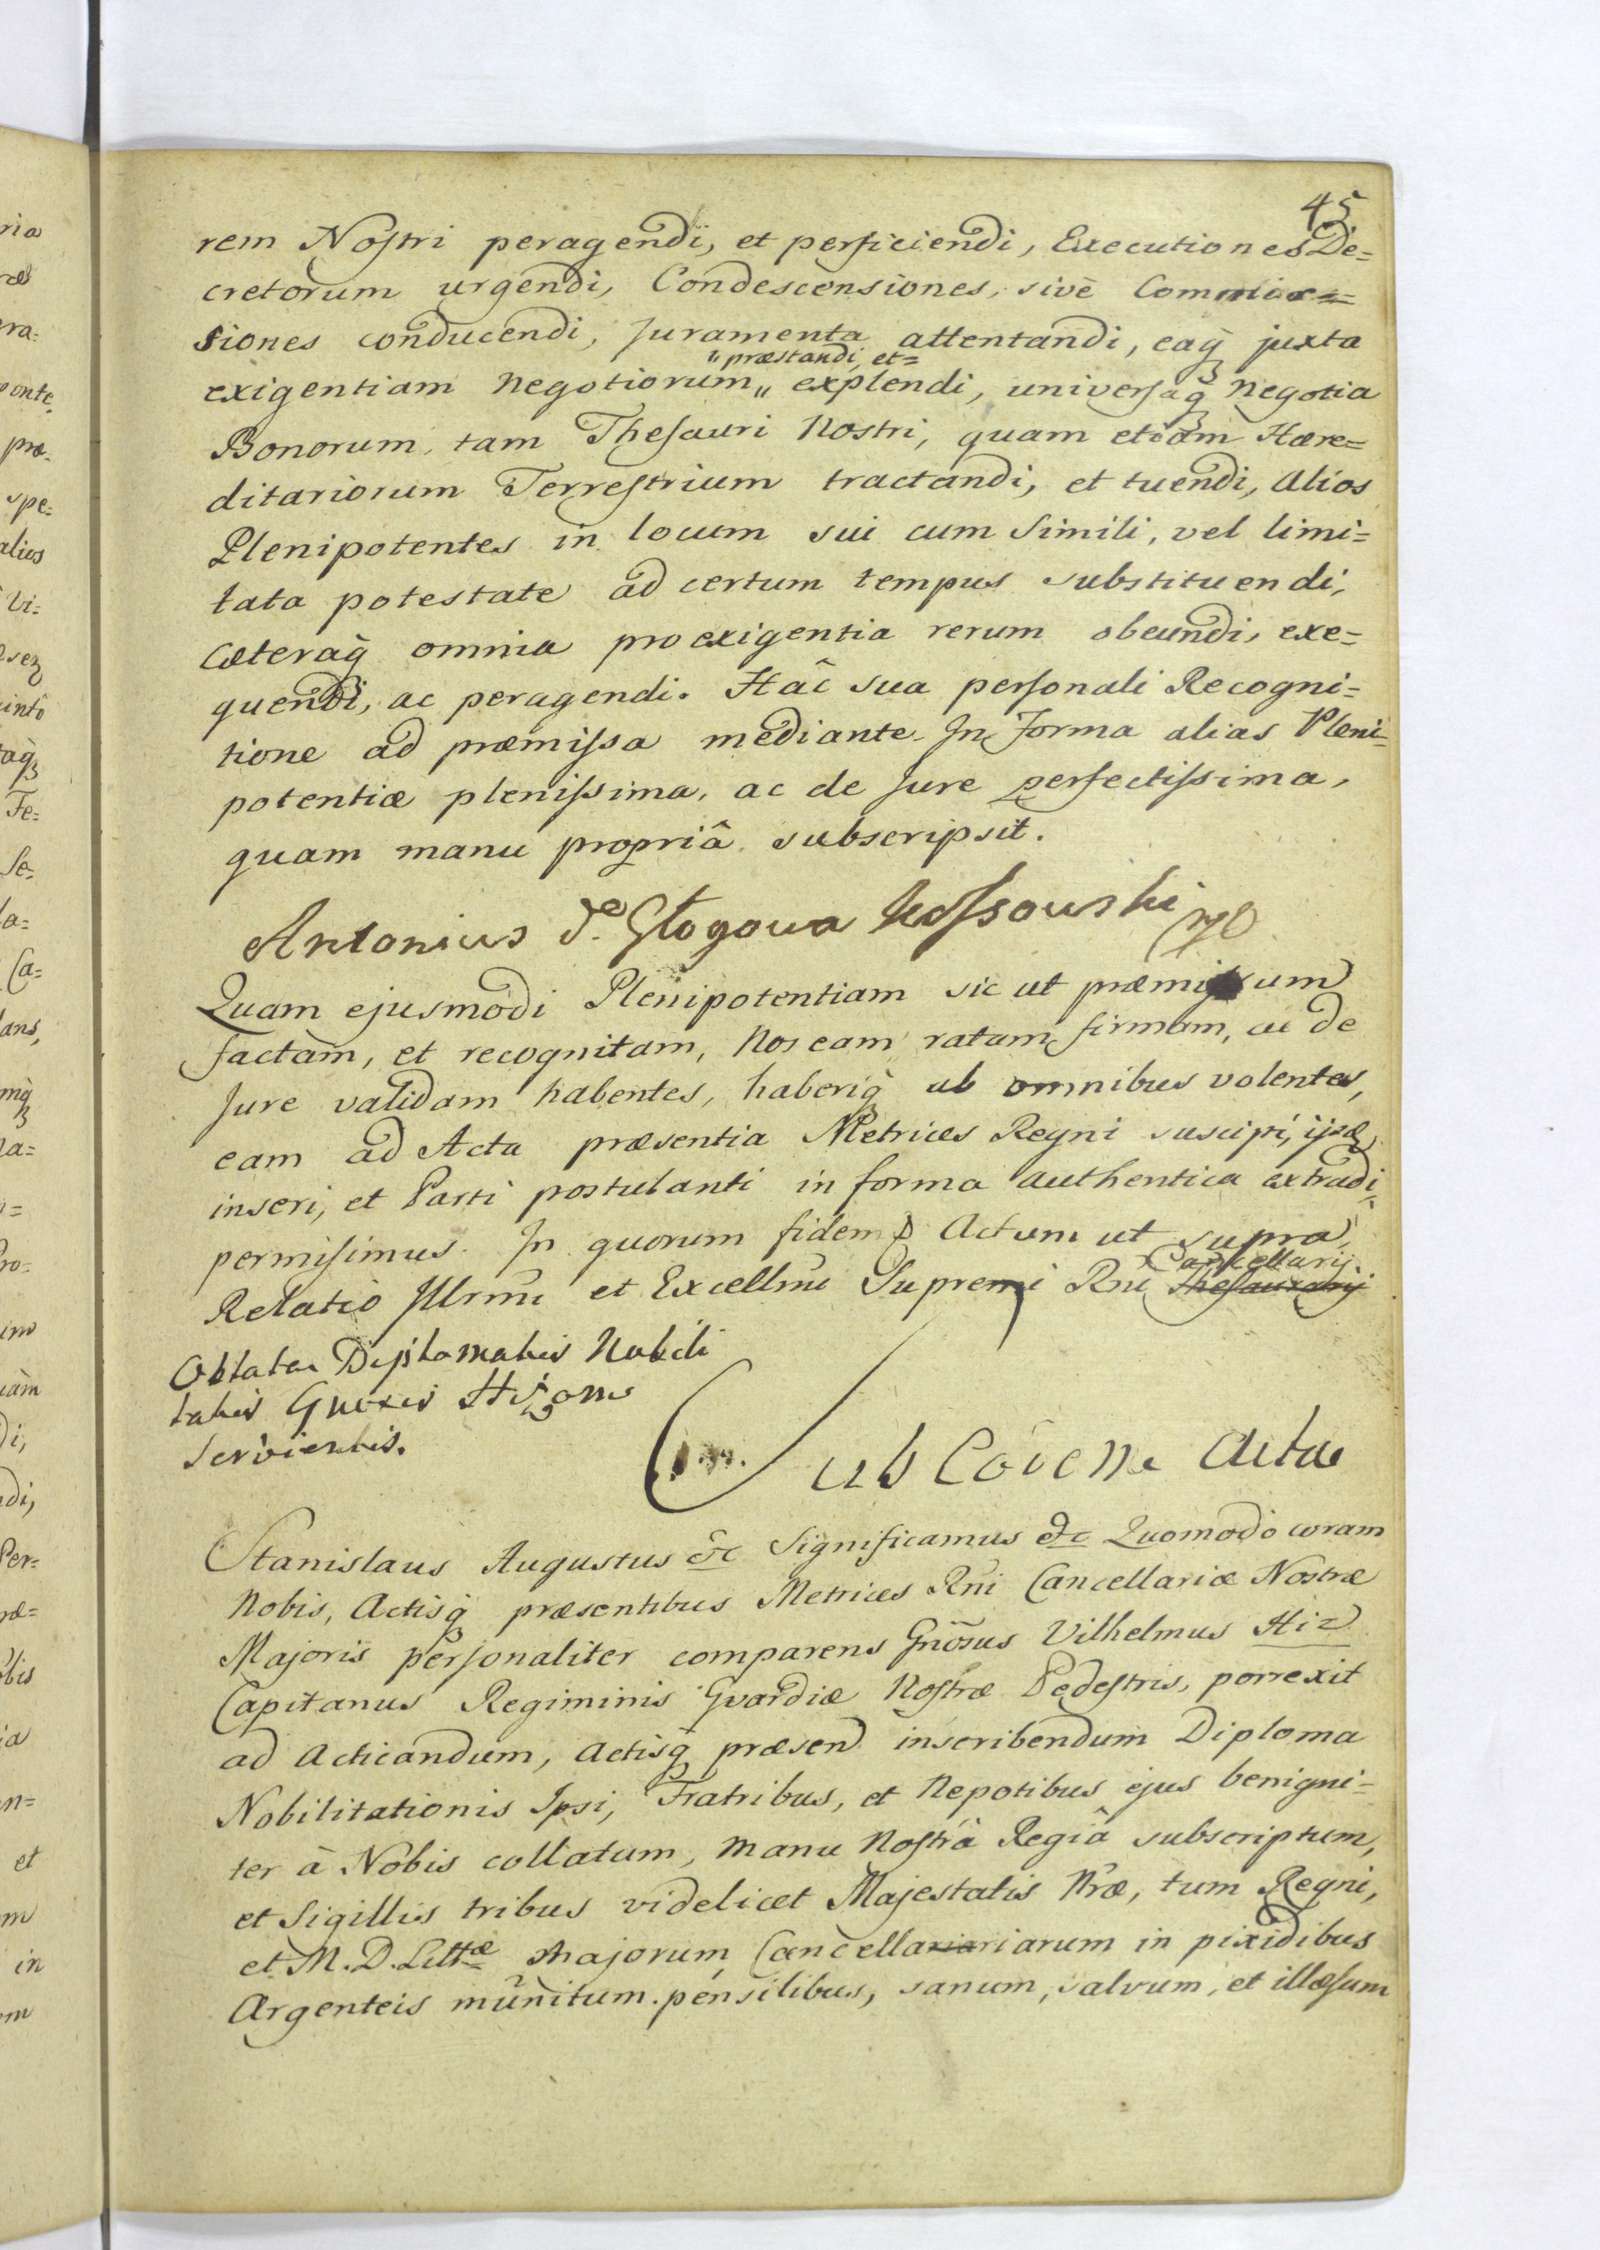 45
rem Nostri peragendi, et perficiendi, Executiones De=
cretorum urgendi, Condescensiones, sivè Commis=
siones conducendi, Juramenta attentandi, eaq̀ juxta
" præstandi, et=
exigentiam negotiorum „ explendi, universaq̀ negotia
Bonorum, tam Thesauri Nostri, quam etiam Hære=
ditariorum Terrestrium tractandi, et tuendi, Alios
Plenipotentes in locum sui cum simili, vel limi=
tata potestate ad certum tempus substituendi,
cæteraq̀ omnia pro exigentia rerum obeundi, exe=
quendi, ac peragendi. Hâc sua personali Recogni=
tione ad præmissa mediante. In Forma alias Pleni=
potentiæ plenissima, ac de Jure perfectissima,
quam manu propriâ subscripsit.
Antonius de Głogowa Kossowski
Quam ejusmodi Plenipotentiam sic ut præmissum
factam, et recognitam, Nos eam ratam firmam, ac de
Jure validam habentes, haberiq̀ ab omnibus volentes,
eam ad Acta præsentia Metrices Regni suscipi, ijsq̀
inseri, et Parti postulanti in forma authentica extradi
permisimus. In quorum fidem Actum ut supra,
Cancellarij
Relatio Illrmi et Excellmi Supremi Rni Thesaurarij
Oblata Diplomatis Nobili
tatis Gnosis Hizom
servientis.
Sub Eodem Actu
Stanislaus Augustus &c Significamus &c Quomodo coram
Nobis, Actisq̀ præsentibus Metrices Rñi Cancellariæ Nostræ
Majoris personaliter comparens Gñosus Vilhelmus Hiz
Capitanus Regiminis Gvardiæ Nostræ Pedestris, porrexit
ad Acticandum, Actisq̀ præsen inscribendum Diploma
Nobilitationis Ipsi, Fratribus, et Nepotibus ejus benigni=
ter à Nobis collatum, manu Nostrâ Regiâ subscriptum,
et Sigillis tribus videlicet Majestatis Nræ, tum Regni,
et M. D. Littæ Majorum Cancellariarum in pixidibus
Argenteis munitum pensilibus, sanum, salvum, et illæsum